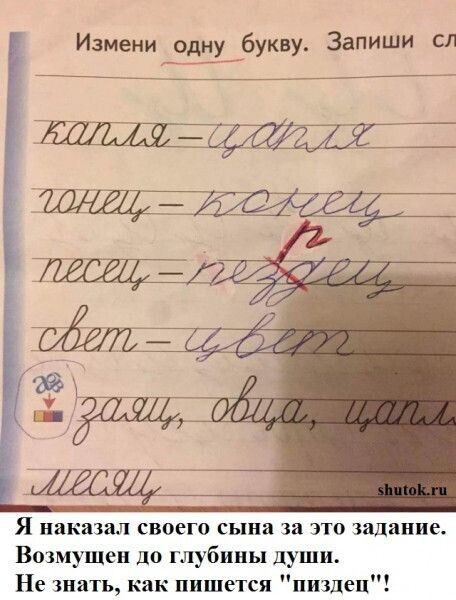 Измени одну букву. Запиши сл
капля – цапля
гонец – конец
р
песец – пездец
свет – цвет
заяц, овца, цапл
месяц
shutok.ru
Я наказал своего сына за это задание.
Возмущен до глубины души.
Не знать, как пишется "пиздец"!